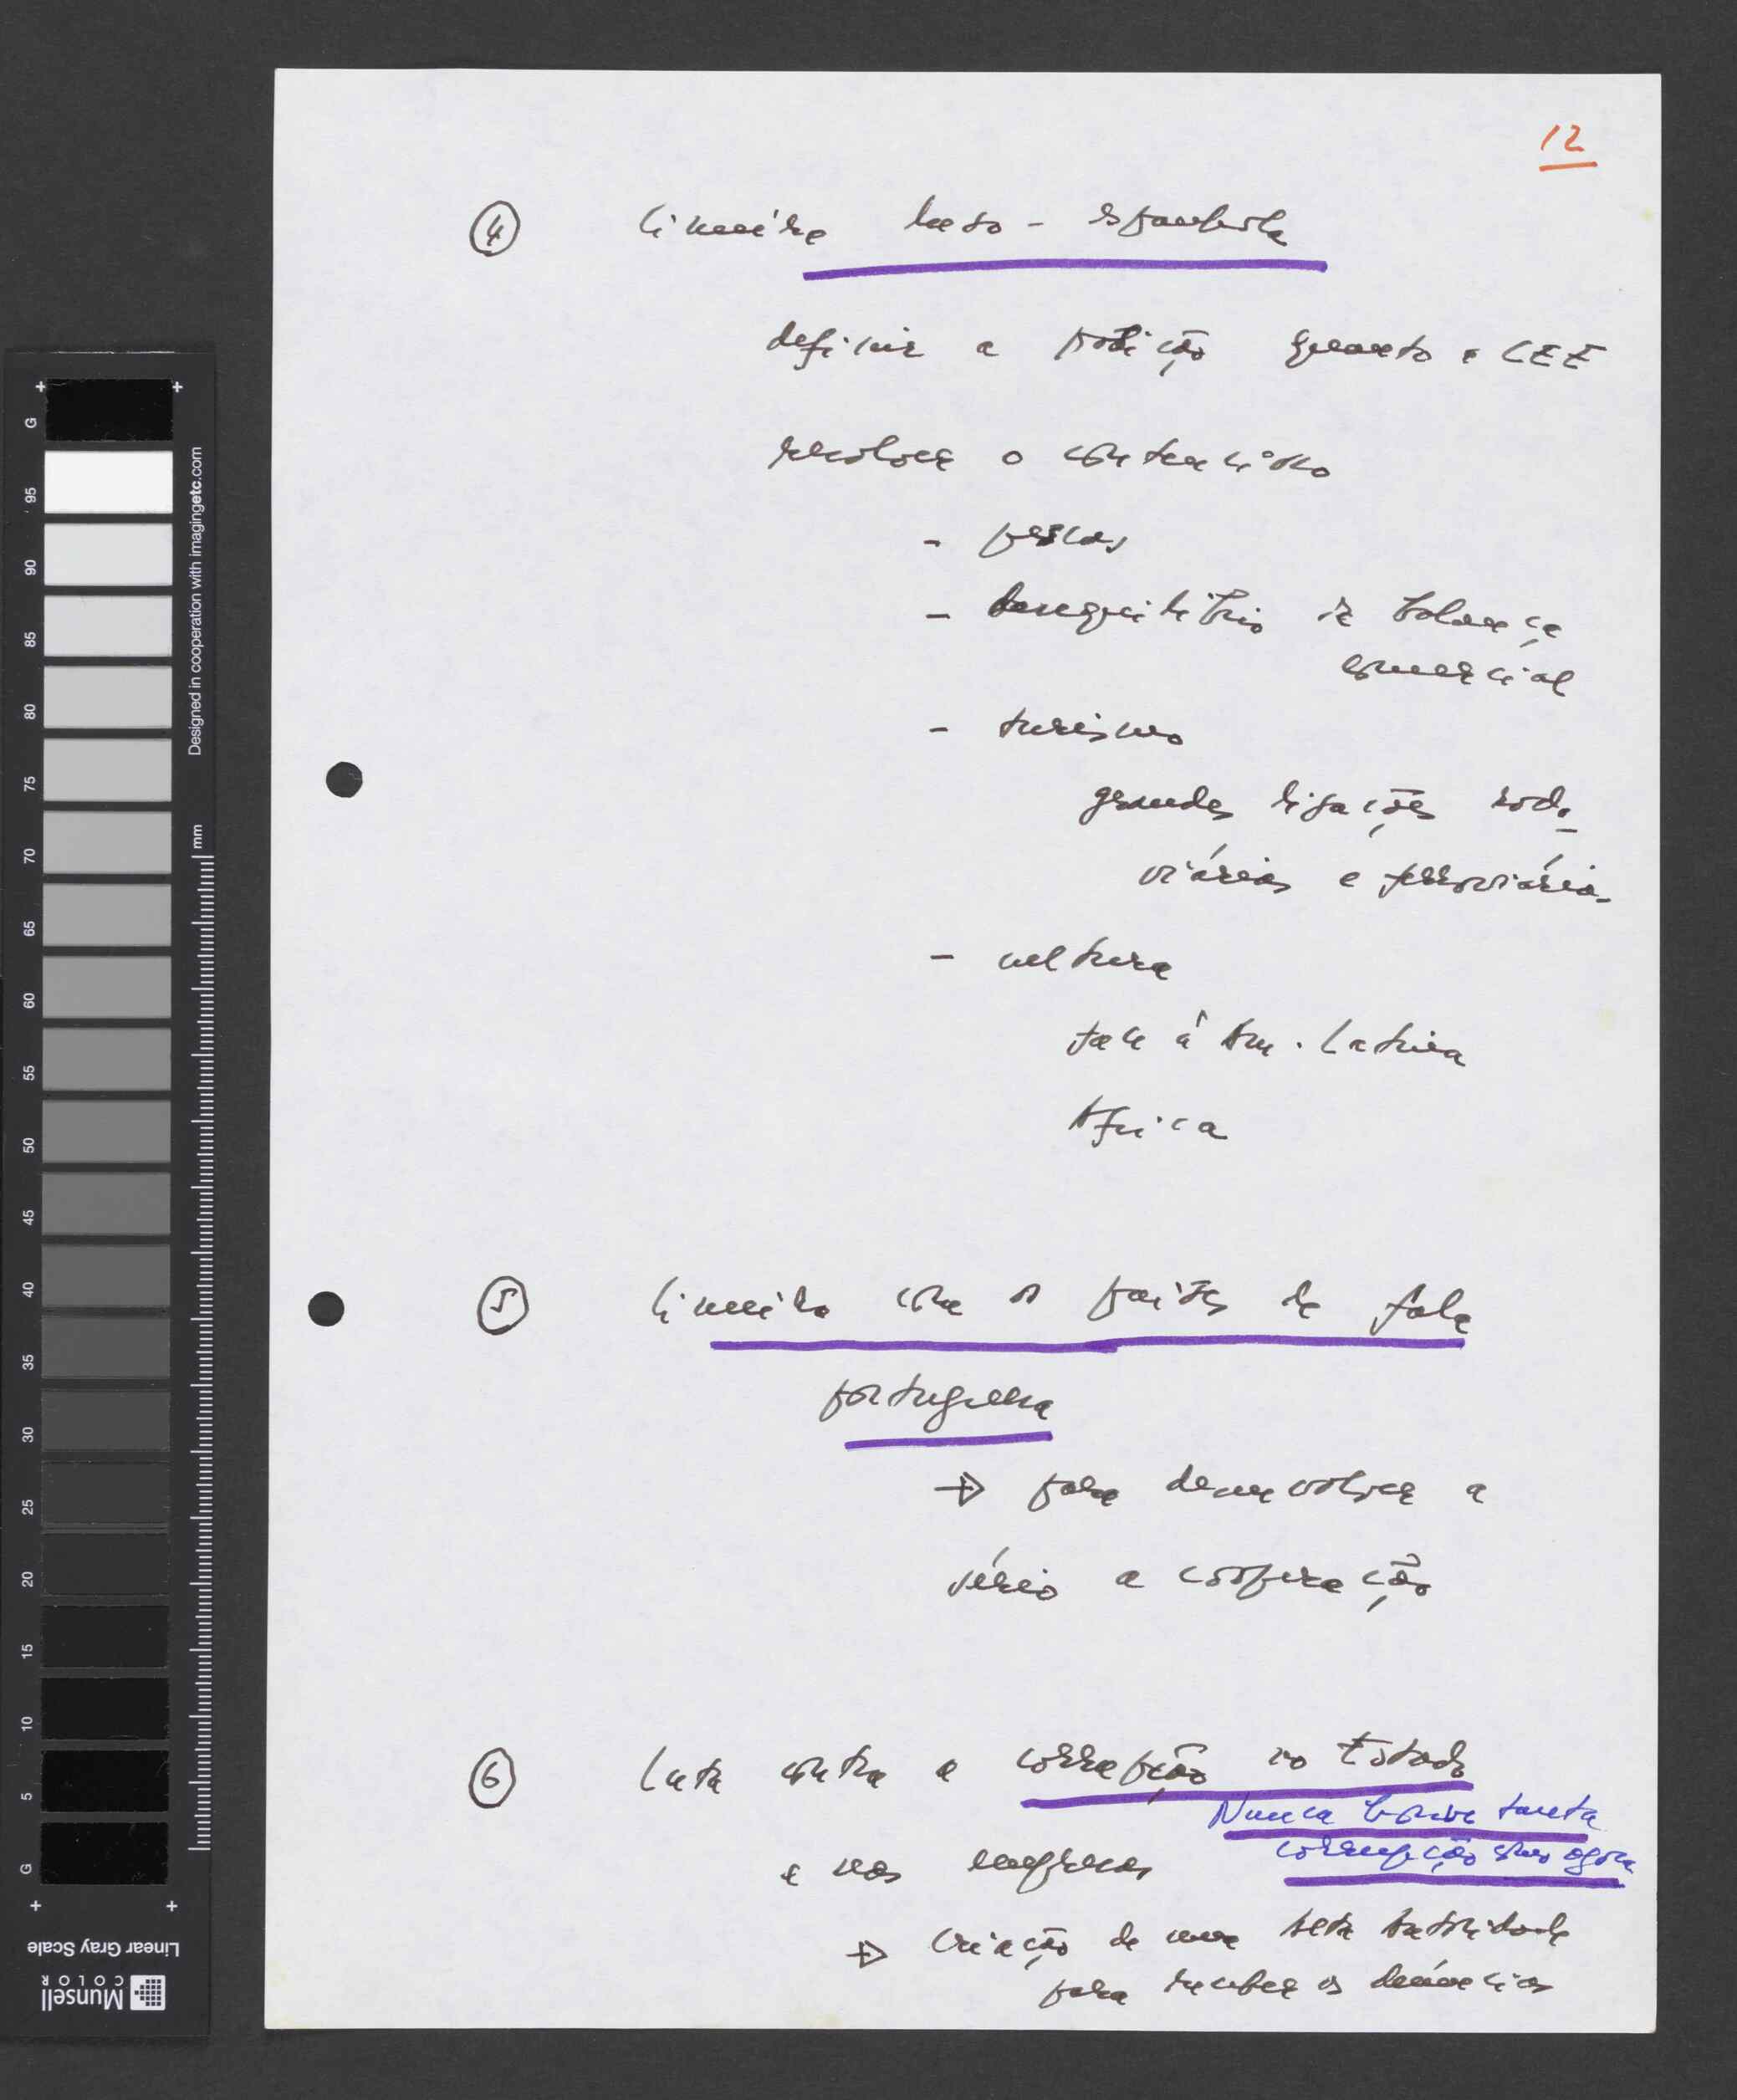 12
④ Cimeira luso-espanhola
definir a posição quanto a CEE
resolver o contencioso
- pescas
- desequilíbrio da balança
comercial
- turismo
grandes ligações rodo-
viárias e ferroviárias
- cultura
face à Am. Latina
Africa
⑤ Cimeira com os países de fala
portuguesa
→ para desenvolver a
sério a cooperação
⑥ Luta contra a corrupção no Estado
Nunca houve tanta
corrupção como agora
e nas empresas
→ criação de uma Alta Autoridade
para receber as denúncias
G 95 90 85 80 75 70 65 60 55 50 45 40 35 30 25 20 15 10 5 G
mm
Designed in cooperation with imagingetc.com
Linear Gray Scale
Munsell
COLOR